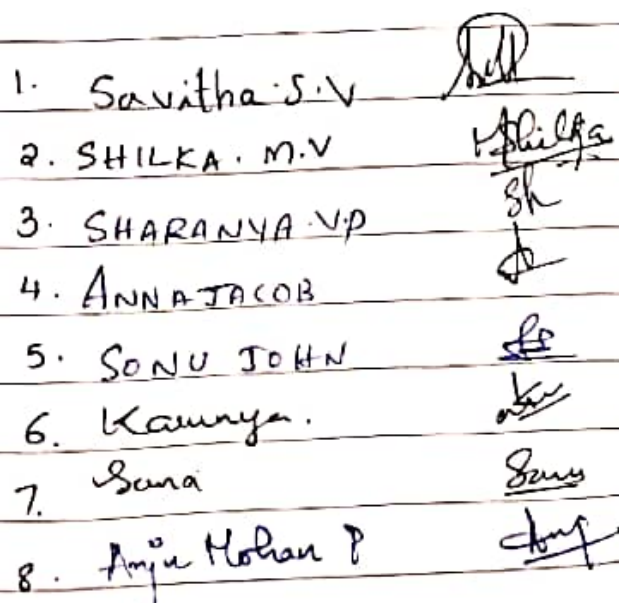 1. Savitha.S.V
2. SHILKA. M.V Shilka
3. SHARANYA.V.P Sh
4. ANNA JACOB
5. SONU JOHN
6. Kaunya.
7. Sana Sana
8. Anju Mohan P Anj